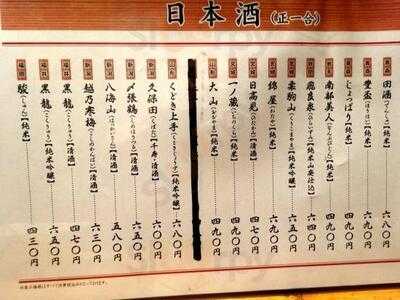 日本酒（正一合）
青森 田酒（でんしゅ）【純米】 六八〇円
青森 豊盃（ほうはい）【純米】 六九〇円
青森 じょっぱり【純米】 四九〇円
南部美人（なんぶびじん）【純米】
飛良泉（ひらいずみ）【純米山廃仕込】
栗駒山（くりこまやま）【純米吟醸】 六五〇円
宮城 綿屋（わたや）【純米】 六九〇円
宮城 日高見（ひたかみ）【純米】
宮城 一ノ蔵（いちのくら）【純米】 四九〇円
山形 大山（おおやま）【純米】 四九〇円
山形 くどき上手（くどきじょうず）【純米吟醸】 六八〇円
新潟 久保田（くぼた）千寿【清酒】 六〇〇円
新潟 〆張鶴（しめはりつる）【純米吟醸】 六五〇円
新潟 八海山（はっかいさん）【清酒】 五八〇円
新潟 越乃寒梅（こしのかんばい）【清酒】 六三〇円
福井 黒龍（こくりゅう）【清酒】 四七〇円
福井 黒龍（こくりゅう）【純米吟醸】 六五〇円
福岡 駿（しゅん）【純米】 四三〇円